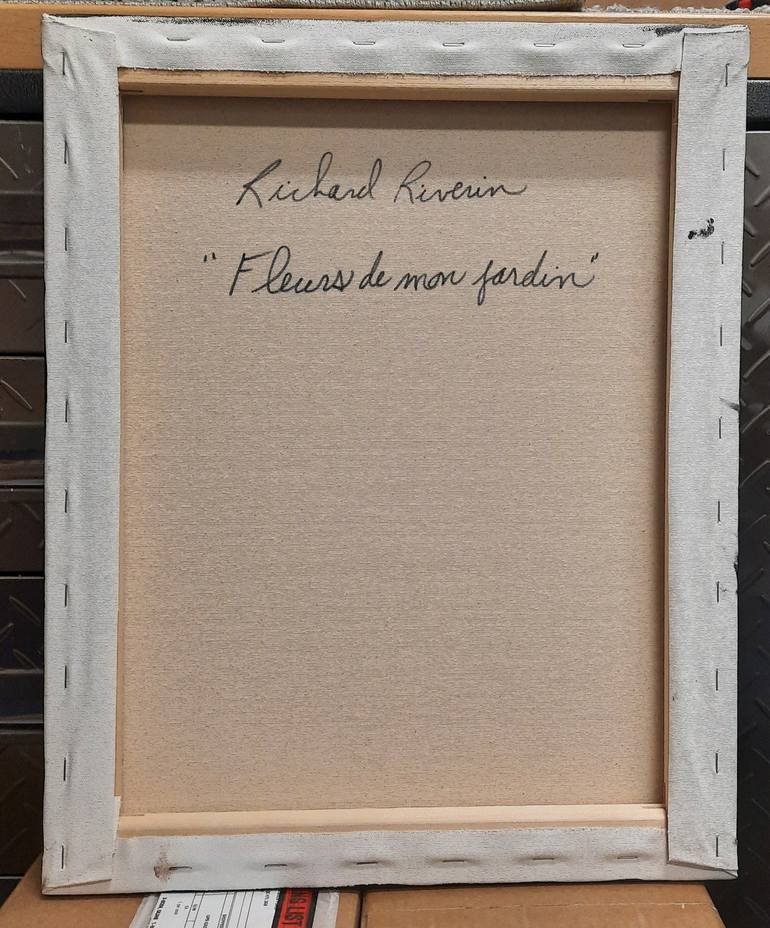 Richard Riverin
"Fleurs de mon jardin"
NG LIST